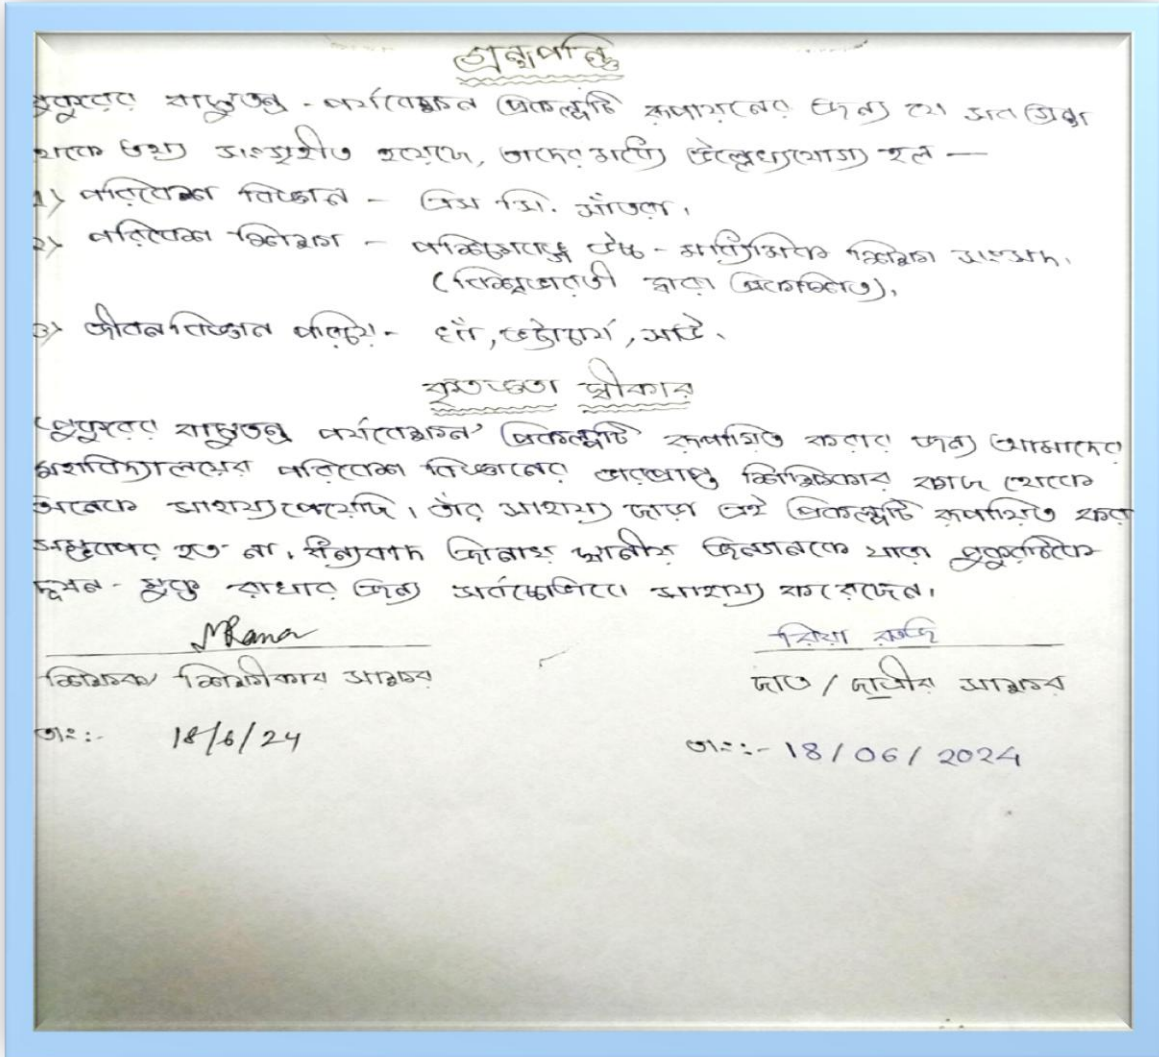 গ্রন্থপঞ্জি
পুকুরের বাস্তুতন্ত্র - পর্যবেক্ষন প্রকল্পটি রূপায়নের জন্য যে সব গ্রন্থ
থেকে তথ্য সংগৃহীত হয়েছে, তাদের মধ্যে উল্লেখ্যযোগ্য হল —
১) পরিবেশ বিজ্ঞান - এস সি. সাঁতরা।
২) পরিবেশ শিক্ষা - পশ্চিমবঙ্গ উচ্চ - মাধ্যমিক শিক্ষা সংসদ।
(বিশ্বভারতী দ্বারা প্রকাশিত)।
৩) জীবনবিজ্ঞান পরিচয় - ভট্টাচার্য,
কৃতজ্ঞতা স্বীকার
'পুকুরের বাস্তুতন্ত্র পর্যবেক্ষন' প্রকল্পটি রূপায়িত করার জন্য আমাদের
মহাবিদ্যালয়ের পরিবেশ বিজ্ঞানের শিক্ষিকার কাছ থেকে
অনেক সাহায্য পেয়েছি। তাঁর সাহায্য ছাড়া এই প্রকল্পটি রূপায়িত করা
সম্ভবপর হত না। ধন্যবাদ জানাই স্থানীয় জনগনকে যারা পুকুরটিকে
দূষন - মুক্ত রাখার জন্য সাহায্য করেছেন।
MRana রিয়া
শিক্ষক/ শিক্ষিকার সাক্ষর ছাত্র / ছাত্রীর সাক্ষর
তাং:- 18/6/24 তাং:- 18/06/2024